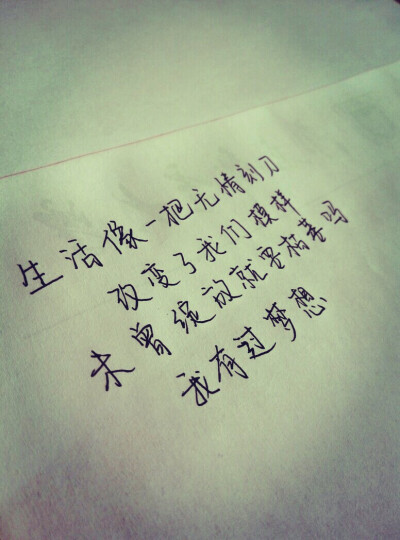 生活像一把无情刻刀
改变了我们模样
未曾绽放就要枯萎吗
我有过梦想